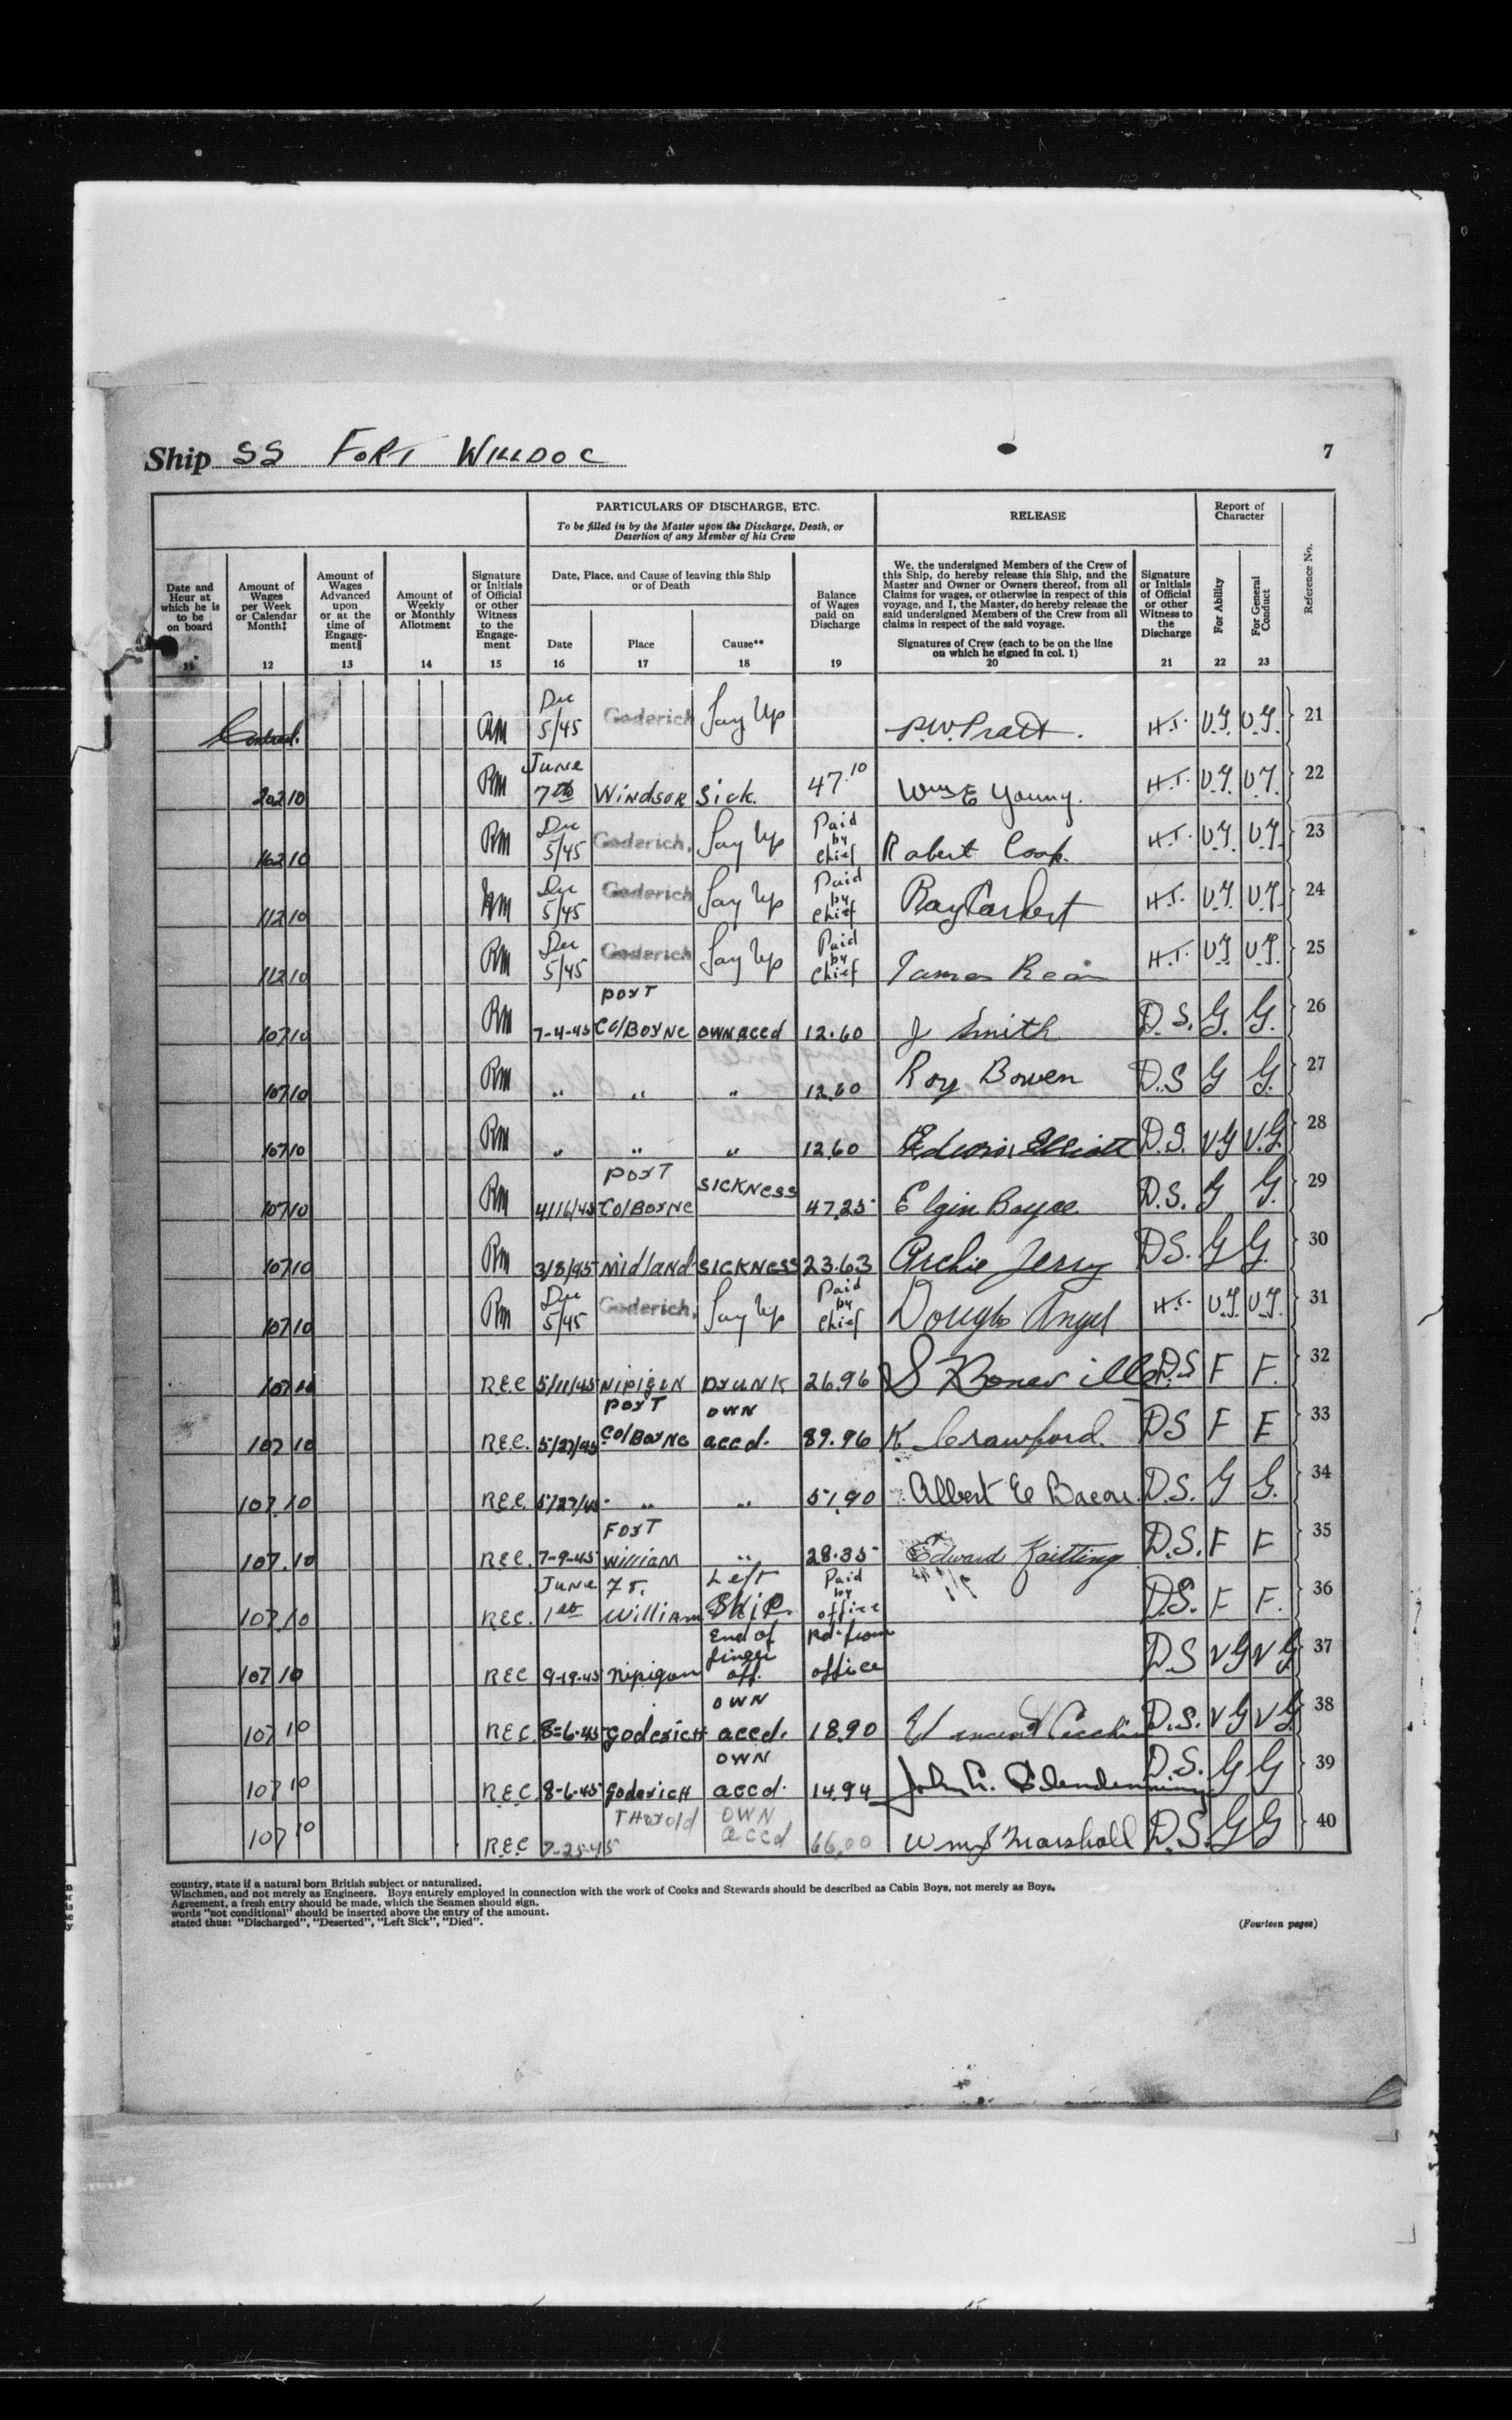 Ship SS FORT WILLDOC
7
PARTICULARS OF DISCHARGE, ETC.
To be filled in by the Master upon the Discharge, Death, or
Desertion of any Member of his Crew
RELEASE
Report of
Character
Date and
Hour at
which he is
to be
on board
11
Amount of
Wages
per Week
or Calendar
Month‡
12
Amount of
Wages
Advanced
upon
or at the
time of
Engage-
ment‖
13
Amount of
Weekly
or Monthly
Allotment
14
Signature
or Initials
of Official
or other
Witness
to the
Engage-
ment
15
Date, Place, and Cause of leaving this Ship
or of Death
Date
16
Place
17
Cause**
18
Balance
of Wages
paid on
Discharge
19
We, the undersigned Members of the Crew of
this Ship, do hereby release this Ship, and the
Master and Owner or Owners thereof, from all
Claims for wages, or otherwise in respect of this
voyage, and I, the Master, do hereby release the
said undersigned Members of the Crew from all
claims in respect of the said voyage.
Signatures of Crew (each to be on the line
on which he signed in col. 1)
20
Signature
or Initials
of Official
or other
Witness to
the
Discharge
21
For Ability
22
For General
Conduct
23
Reference No.
RM Dec 5/45 Goderich Lay Up P.W. Pratt. H.T. V.G. V.G. 21
202 10 RM June 7th Windsor Sick. 47.10 Wm E Young. H.T. V.G. V.G. 22
162 10 RM Dec 5/45 Goderich, Lay Up Paid by Chief Robert Cook. H.T. V.G. V.G. 23
112 10 RM Dec 5/45 Goderich Lay Up Paid by Chief Ray H.T. V.G. V.G. 24
112 10 RM Dec 5/45 Goderich Lay Up Paid by Chief James H.T. V.G. V.G. 25
107 10 RM 7-4-45 Port Colborne OWN accd 12.60 J Smith D.S. G. G. 26
107 10 RM " " " 12.60 Roy Bowen D.S G G. 27
107 10 RM " " " 12.60 Edwin Elliott D.S. VG V.G. 28
107 10 RM 4/16/45 Port Colborne SICKNESS 47.25 Elgin Boyce D.S. G G. 29
107 10 RM 3/8/45 Midland SICKNESS 23.63 Archie Jerry DS. G G. 30
107 10 RM Dec 5/45 Goderich, Lay Up Paid by Chief Dougls Angel H.T. V.G. V.G. 31
107 10 REC 5/11/45 Nipigen Drunk 26.96 S D.S F F. 32
107 10 REC. 5/27/45 Port Colborne OWN accd. 89.96 K. Crawford. DS F F 33
107.10 REC. 5/27/45 " " 51.90 Albert E Bacon D.S. G G. 34
107.10 REC. 7-9-45 Fort William " 28.35 Edward D.S. F F 35
107.10 REC. June 1st Ft. William Left Ship. Paid by office D.S. F F. 36
107 10 REC 9-19-45 Nipigon End of off. Pd. from office D.S VG VG 37
107 10 REC 8-6-45 Goderich OWN accd. 18.90 D.S. VG VG 38
107 10 REC 8-6-45 Goderich OWN accd. 14.94 John D.S. G G 39
107 10 REC 7-25-45 Thorold OWN accd 66.00 Wm J Marshall D.S. G G 40
country, state if a natural born British subject or naturalized.
Winchmen, and not merely as Engineers. Boys entirely employed in connection with the work of Cooks and Stewards should be described as Cabin Boys, not merely as Boys.
Agreement, a fresh entry should be made, which the Seamen should sign.
words "not conditional" should be inserted above the entry of the amount.
stated thus: "Discharged", "Deserted", "Left Sick", "Died".
(Fourteen pages)